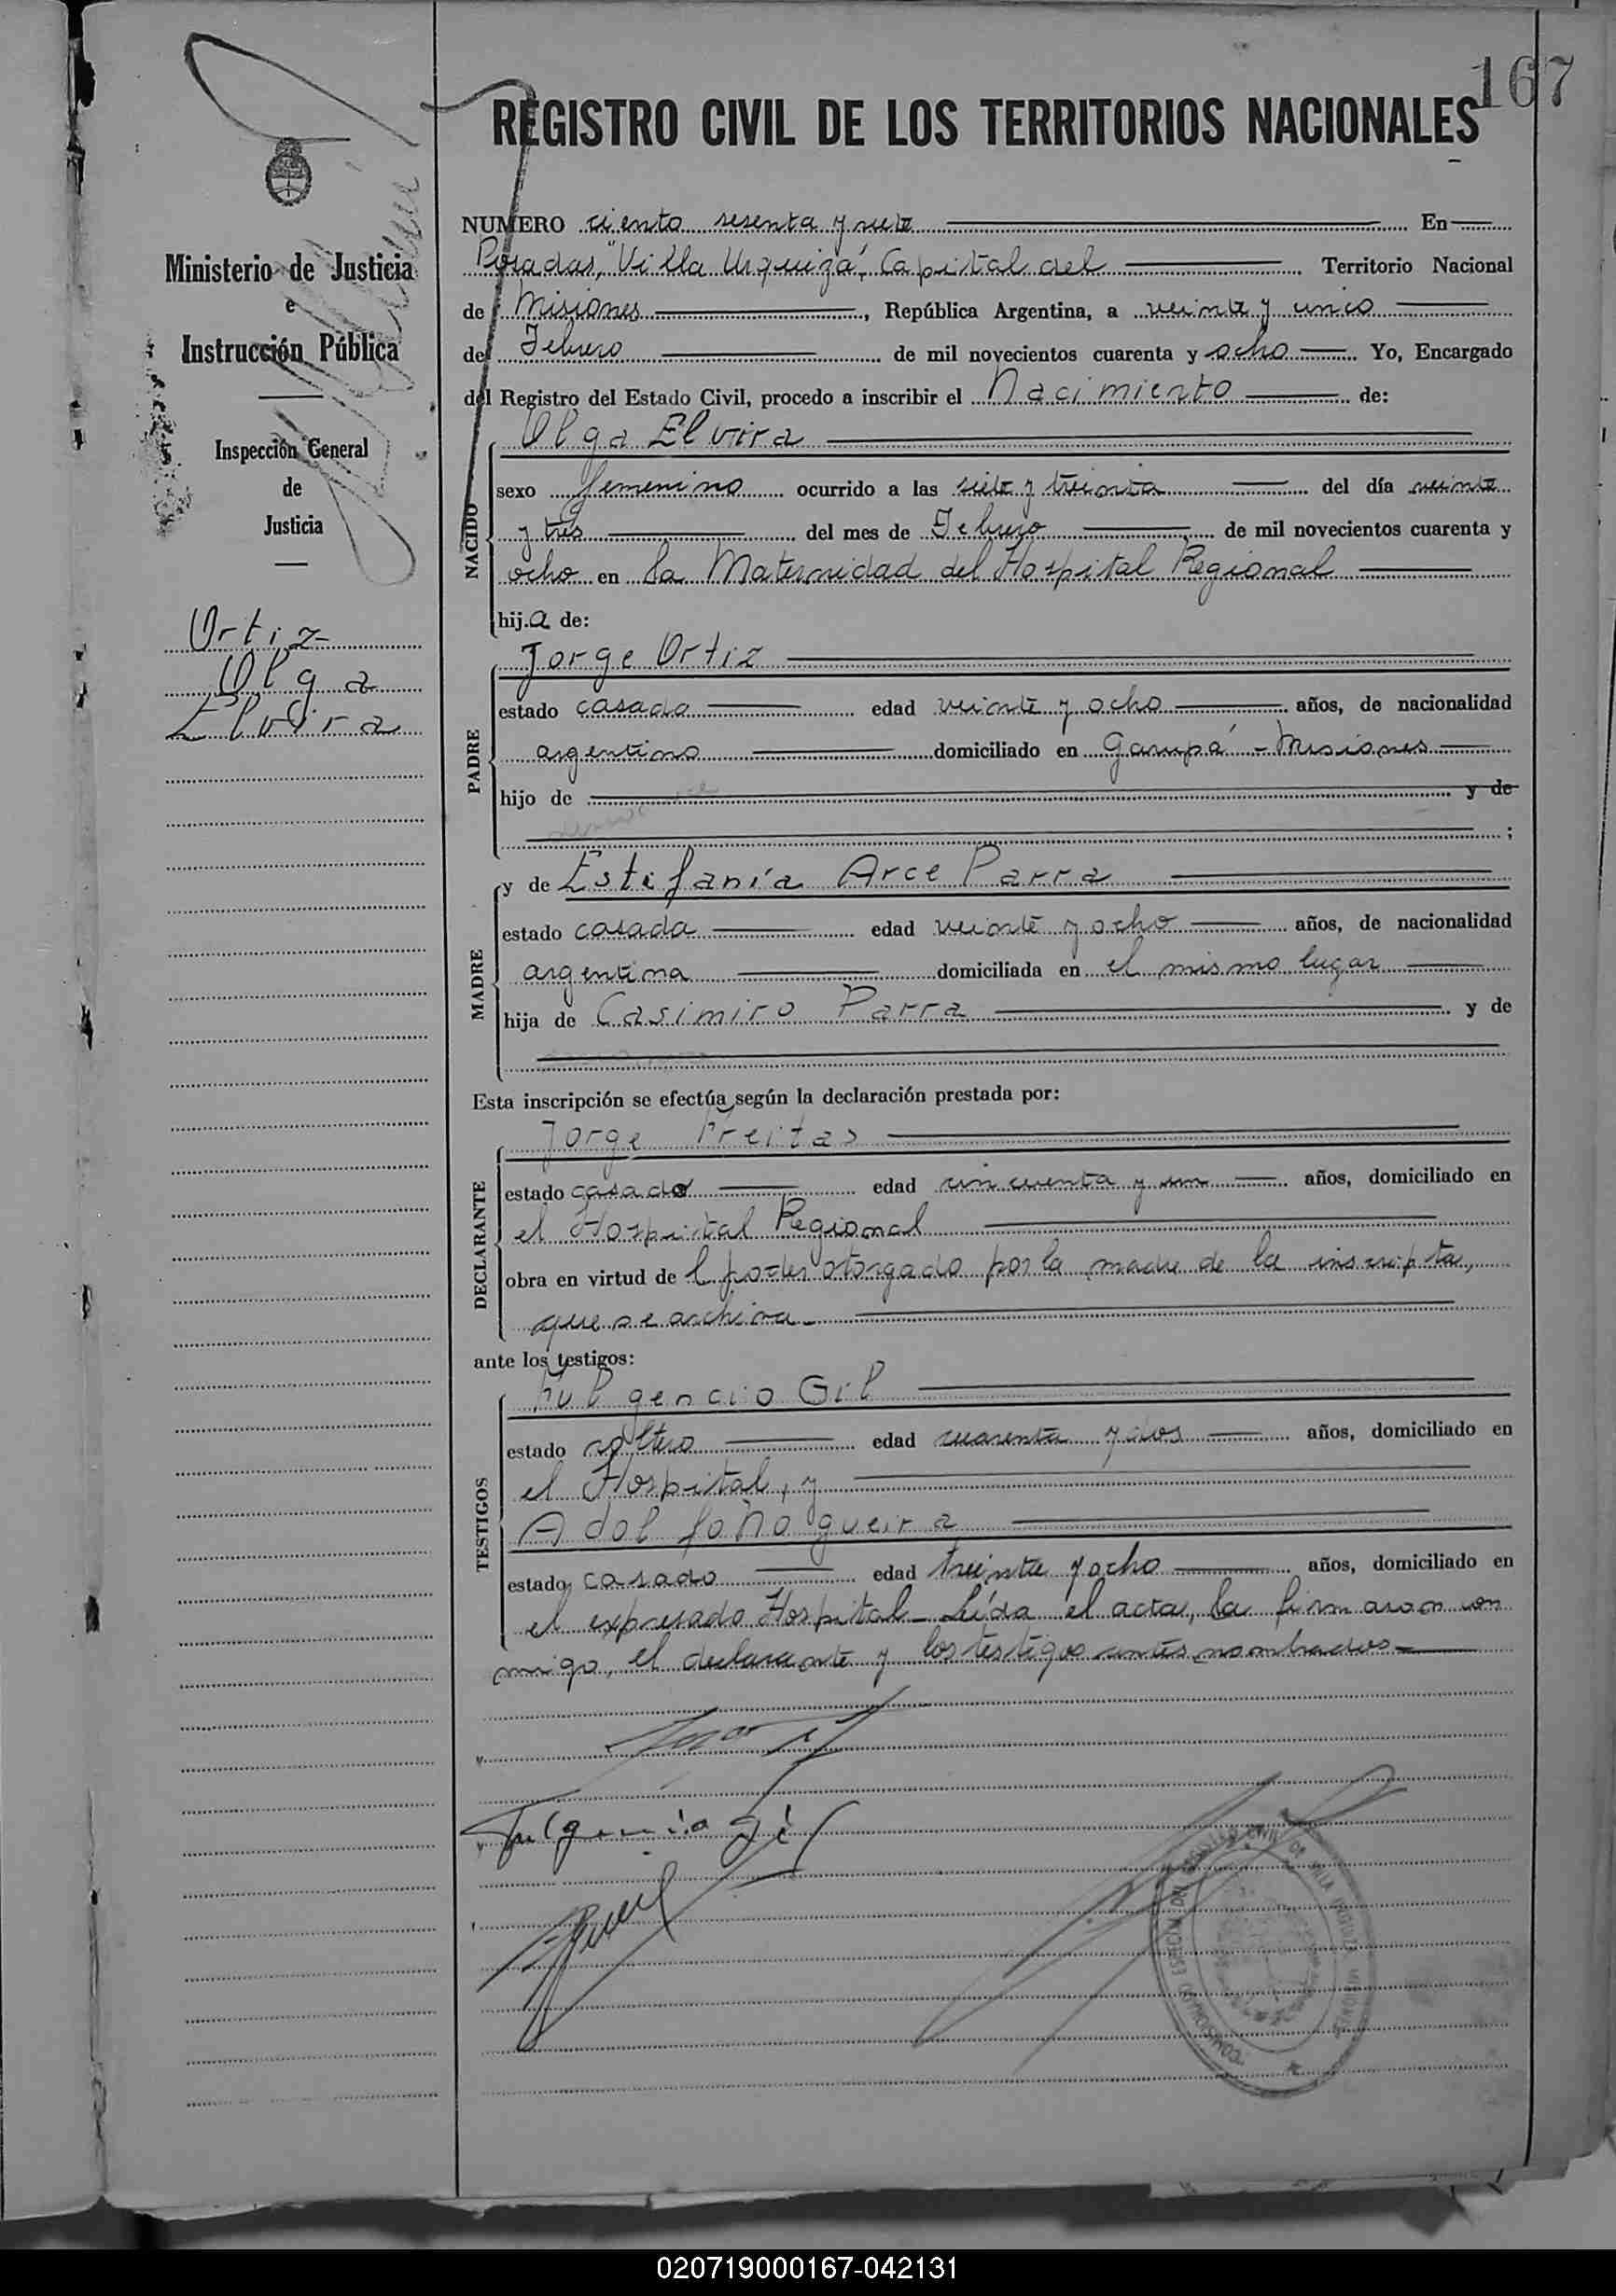 167
REGISTRO CIVIL DE LOS TERRITORIOS NACIONALES
Ministerio de Justicia
e
Instrucción Pública
Inspección General
de
Justicia
Ortiz
Olga
Elvira
NUMERO ciento sesenta y siete En
Posadas, "Villa Urquiza", Capital del Territorio Nacional
de Misiones, República Argentina, a veinte y cinco
de Febrero de mil novecientos cuarenta y ocho Yo, Encargado
del Registro del Estado Civil, procedo a inscribir el Nacimiento de:
NACIDO
Olga Elvira
sexo femenino ocurrido a las siete y treinta del día veinte
y tres del mes de Febrero de mil novecientos cuarenta y
ocho en la Maternidad del Hospital Regional
hija de:
PADRE
Jorge Ortiz
estado casado edad veinte y ocho años, de nacionalidad
argentino domiciliado en Garupá - Misiones
hijo de y de
;
MADRE
y de Estefanía Arce Parra
estado casada edad veinte y ocho años, de nacionalidad
argentina domiciliada en el mismo lugar
hija de Casimiro Parra y de
Esta inscripción se efectúa según la declaración prestada por:
DECLARANTE
Jorge Freitas
estado casado edad cincuenta y un años, domiciliado en
el Hospital Regional
obra en virtud del poder otorgado por la madre de la inscripta,
que se archiva.
ante los testigos:
TESTIGOS
Fulgencio Gil
estado soltero edad cuarenta y dos años, domiciliado en
el Hospital, y
Adolfo Nogueira
estado casado edad treinta y ocho años, domiciliado en
el expresado Hospital - Leída el acta, la firmaron con
migo, el declarante y los testigos antes nombrados
Fulgencio Gil
REGISTRO CIVIL DE VILLA URQUIZA MISIONES
020719000167-042131